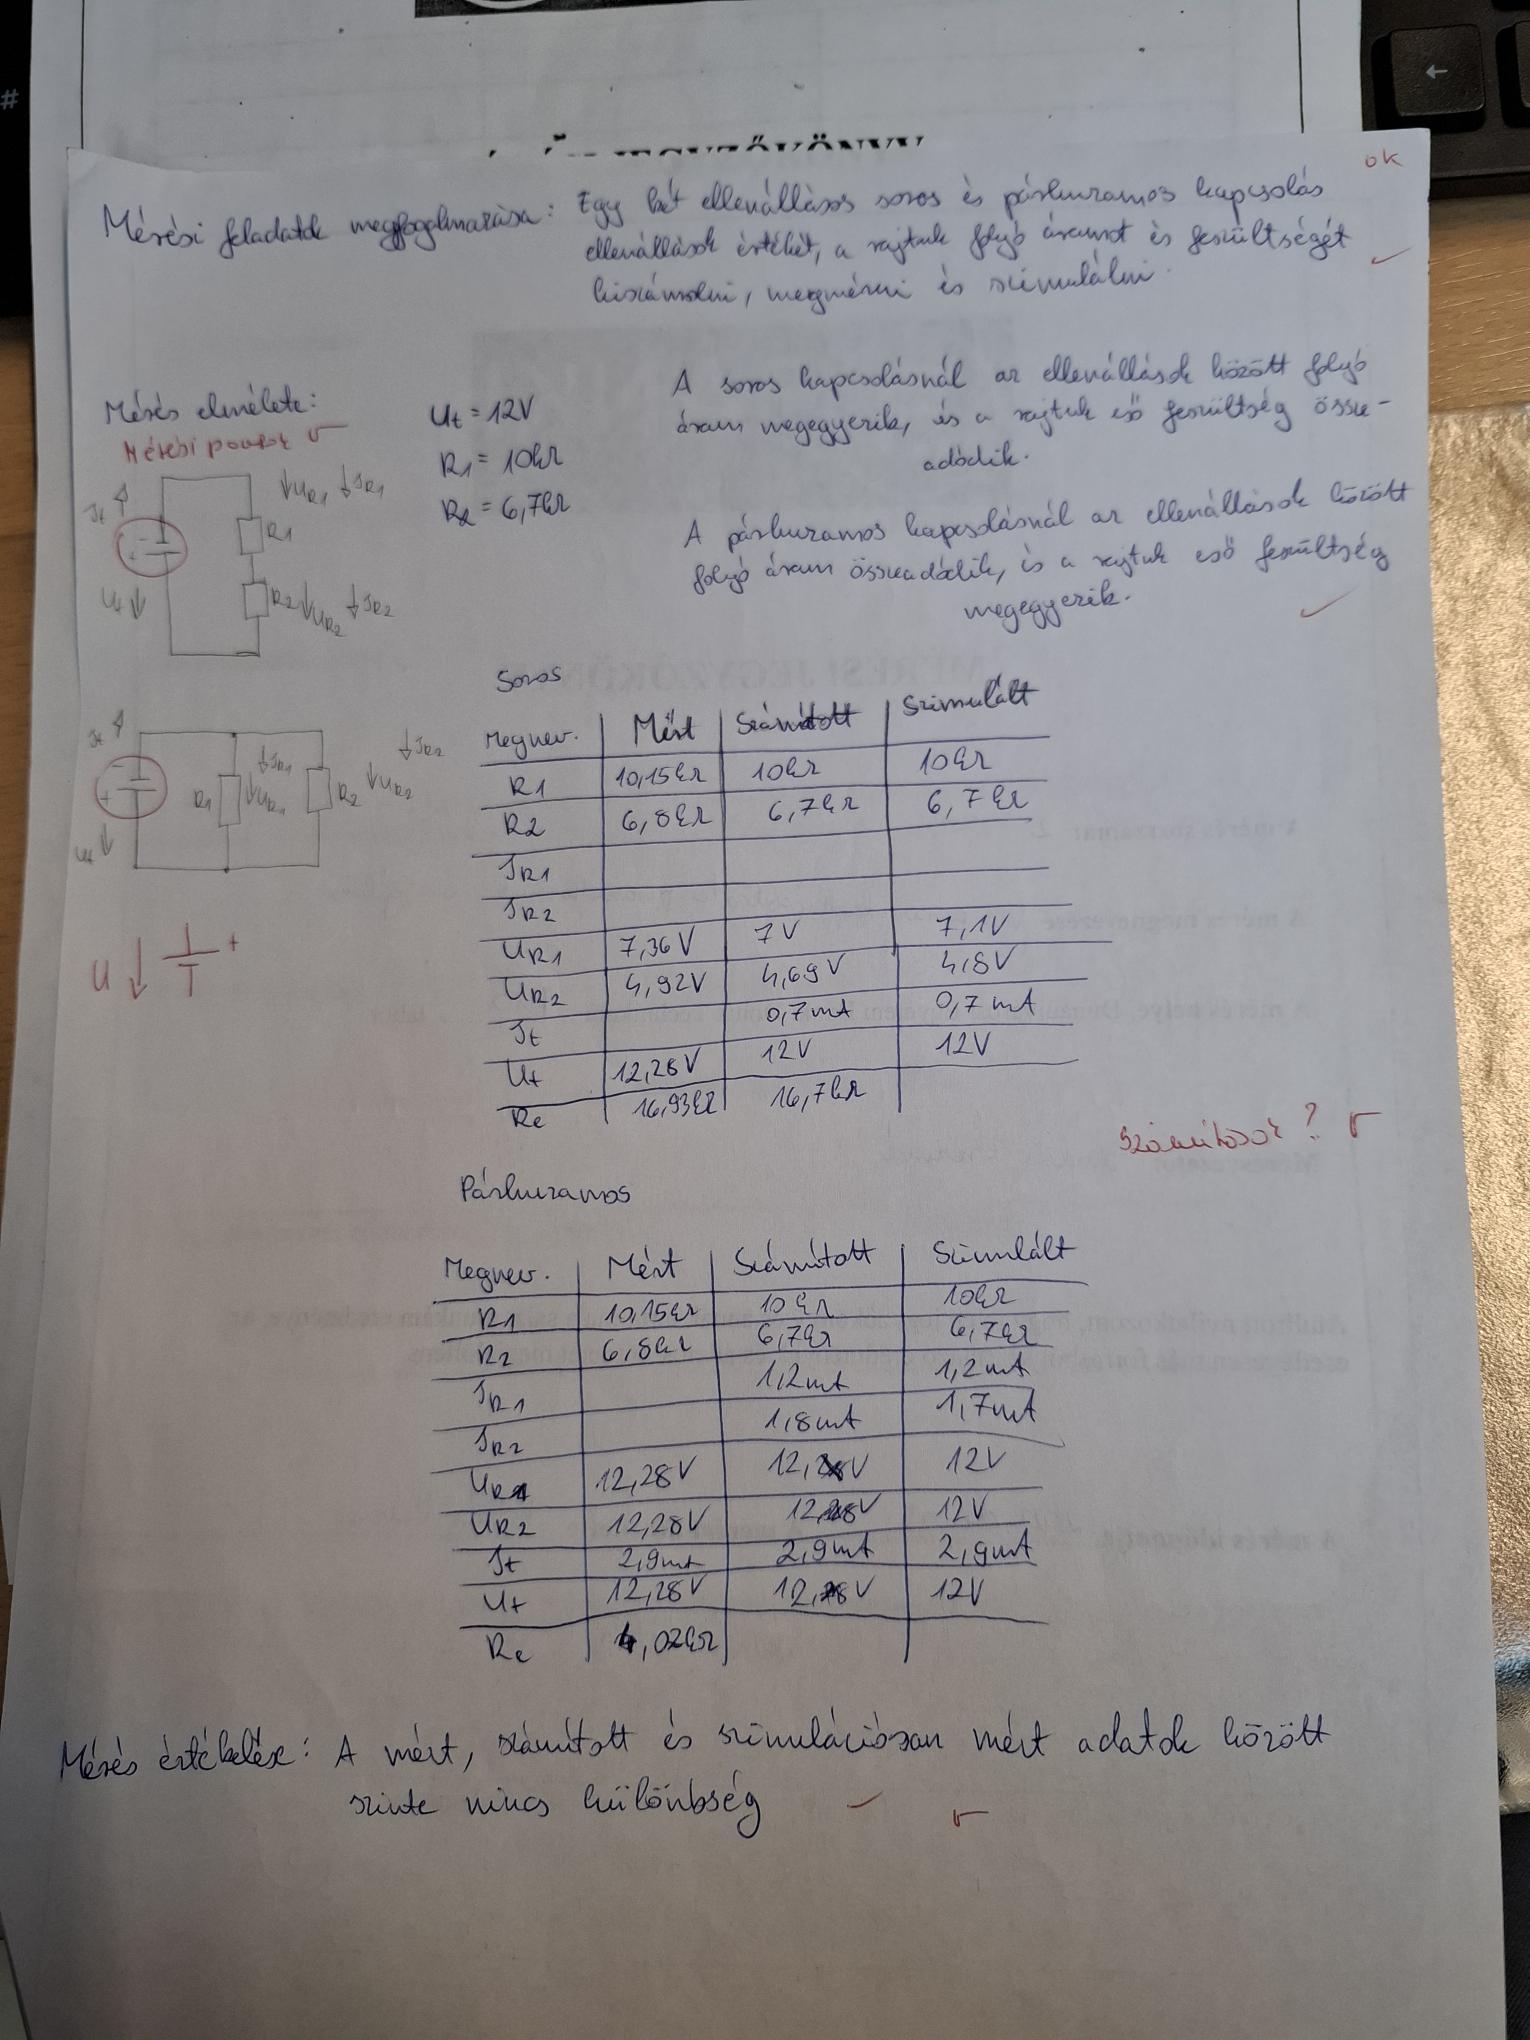 JEGYZŐKÖNYV
ok
Mérési feladatok megfogalmazása: Egy két ellenállásos soros és párhuzamos kapcsolás
ellenállások értékét, a rajtuk folyó áramot és feszültségét
kiszámolni, megmérni és szimulálni.
Mérés elmélete:
Mérési pontok
Ut = 12V
R1 = 10kΩ
R2 = 6,7kΩ
A soros kapcsolásnál az ellenállások között folyó
áram megegyezik, és a rajtuk eső feszültség össze-
adódik.
A párhuzamos kapcsolásnál az ellenállások között
folyó áram összeadódik, és a rajtuk eső feszültség
megegyezik.
It
UR1 IR1
R1
Ut
R2 UR2 IR2
It
IR1
IR2
R1 UR1 R2 UR2
Ut
U
+
Soros
Megnev. Mért Számított Szimulált
R1 10,15kΩ 10kΩ 10kΩ
R2 6,8kΩ 6,7kΩ 6,7kΩ
IR1
IR2
UR1 7,36V 7V 7,1V
UR2 4,92V 4,69V 4,8V
It 0,7mA 0,7mA
Ut 12,28V 12V 12V
Re 16,93kΩ 16,7kΩ
Számítások?
Párhuzamos
Megnev. Mért Számított Szimulált
R1 10,15kΩ 10kΩ 10kΩ
R2 6,8kΩ 6,7kΩ 6,7kΩ
IR1 1,2mA 1,2mA
IR2 1,8mA 1,7mA
UR1 12,28V 12V 12V
UR2 12,28V 12V 12V
It 2,9mA 2,9mA 2,9mA
Ut 12,28V 12V 12V
Re 4,02kΩ
Mérés értékelése: A mért, számított és szimulációsan mért adatok között
szinte nincs különbség